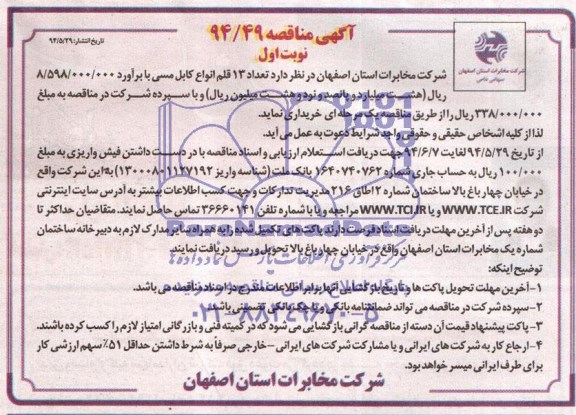 آگهی مناقصه ۹۴/۴۹
نوبت اول
تاریخ انتشار: ۹۴/۵/۲۹
شرکت مخابرات استان اصفهان
سهامی خاص
شرکت مخابرات استان اصفهان در نظر دارد تعداد ۱۳ قلم انواع کابل مسی با برآورد ۸/۵۹۸/۰۰۰/۰۰۰
ریال (هشت میلیارد و پانصد و نود و هشت میلیون ریال) و با سپرده شرکت در مناقصه به مبلغ
۳۳۸/۰۰۰/۰۰۰ ریال را از طریق مناقصه یک مرحله ای خریداری نماید.
لذا از کلیه اشخاص حقیقی و حقوقی واجد شرایط دعوت به عمل می آید.
از تاریخ ۹۴/۵/۲۹ لغایت ۹۴/۶/۷ جهت دریافت استعلام ارزیابی و اسناد مناقصه با در دست داشتن فیش واریزی به مبلغ
۱۰۰/۰۰۰ ریال به حساب جاری شماره ۱۶۴۰۷۴۰۷۶۲ بانک ملت (شناسه واریز ۱۳۰۰۰۸۰۱۱۲۷۱۹۲) به این شرکت واقع
در خیابان چهارباغ بالا ساختمان شماره ۲ اطاق ۲۱۶ مدیریت تدارکات و جهت کسب اطلاعات بیشتر به آدرس سایت اینترنتی
شرکت WWW.TCE.IR و یا WWW.TCI.IR مراجعه و یا با شماره تلفن ۳۶۶۶۰۱۴۱ تماس حاصل نمایند. متقاضیان حداکثر تا
دو هفته پس از آخرین مهلت دریافت اسناد فرصت دارند پاکت های تکمیل شده را به همراه سایر مدارک لازم به دبیرخانه ساختمان
شماره یک مخابرات استان اصفهان واقع در خیابان چهارباغ بالا تحویل و رسید دریافت نمایند.
توضیح اینکه:
۱-آخرین مهلت تحویل پاکت ها و تاریخ بازگشایی آنها برابر اطلاعات مندرج در اسناد مناقصه می باشد.
۲-سپرده شرکت در مناقصه می تواند ضمانتنامه بانکی و یا چک بانکی تضمینی باشد.
۳-پاکت پیشنهاد قیمت آن دسته از مناقصه گرانی بازگشایی می شود که در کمیته فنی و بازرگانی امتیاز لازم را کسب کرده باشند.
۴-ارجاع کار به شرکت های ایرانی و یا مشارکت شرکت های ایرانی-خارجی صرفاً به شرط داشتن حداقل ۵۱٪ سهم ارزشی کار
برای طرف ایرانی میسر خواهد بود.
شرکت مخابرات استان اصفهان
۰۲۱-۸۸۳۴۹۶۷۰-۵